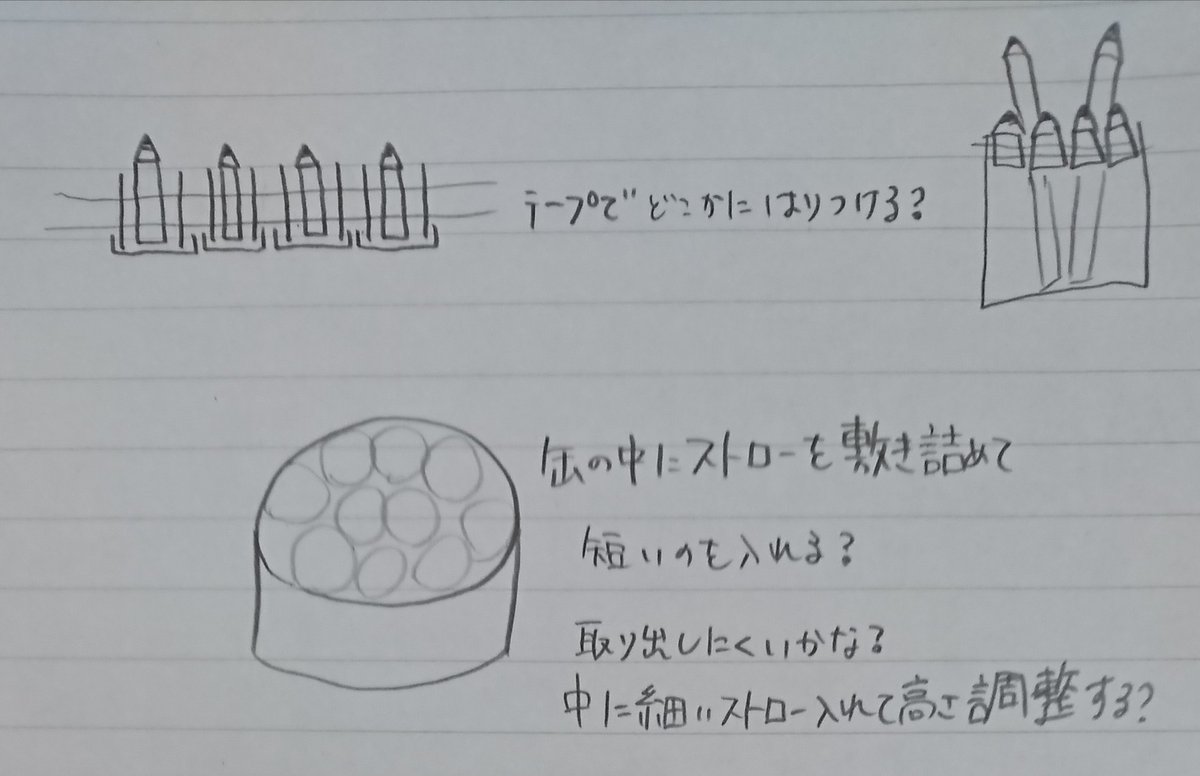 テープでどこかにはりつける?
缶の中にストローを敷き詰めて
短いのを入れる?
取り出しにくいかな?
中に細いストロー入れて高さ調整する?